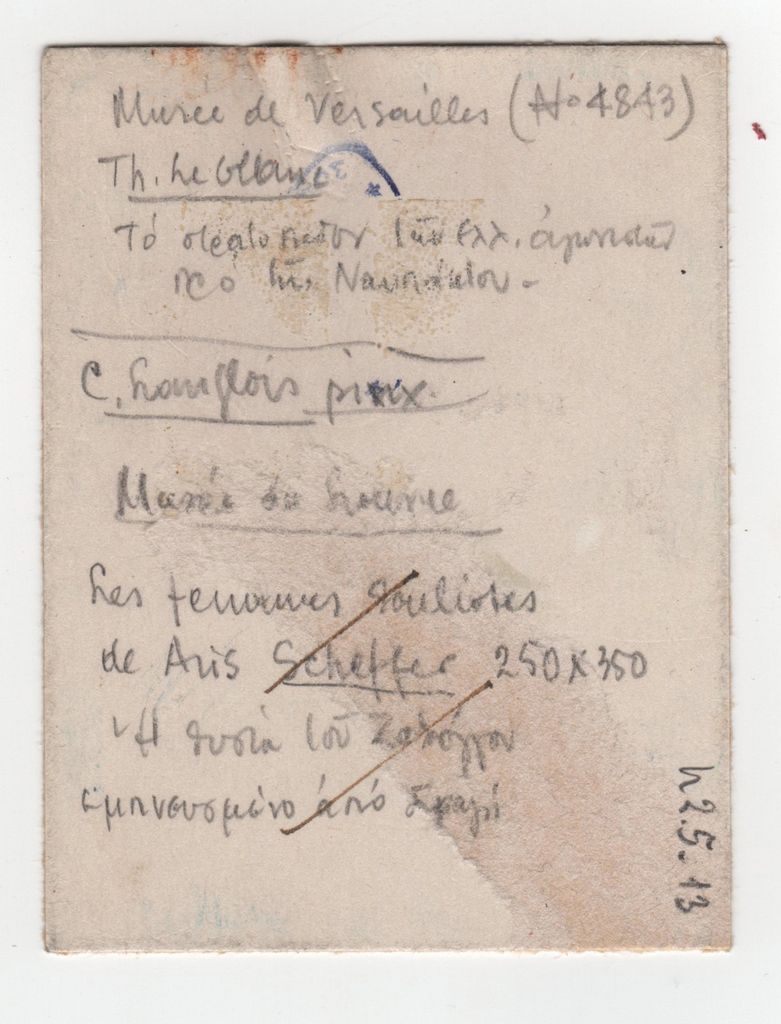 Musée de Versailles (No 4843)
Th. Leblanc
Τό στρατόπεδον τῶν ἑλλ. ἀγωνιστῶν
πρό τῆς Ναυπάκτου -
C. Langlois pinx.
Musée du Louvre
Les femmes Souliotes
de Aris Scheffer 250x350
Ἡ θυσία τοῦ Ζαλόγγου
ἐμπνευσμένο ἀπό
h2.5-13